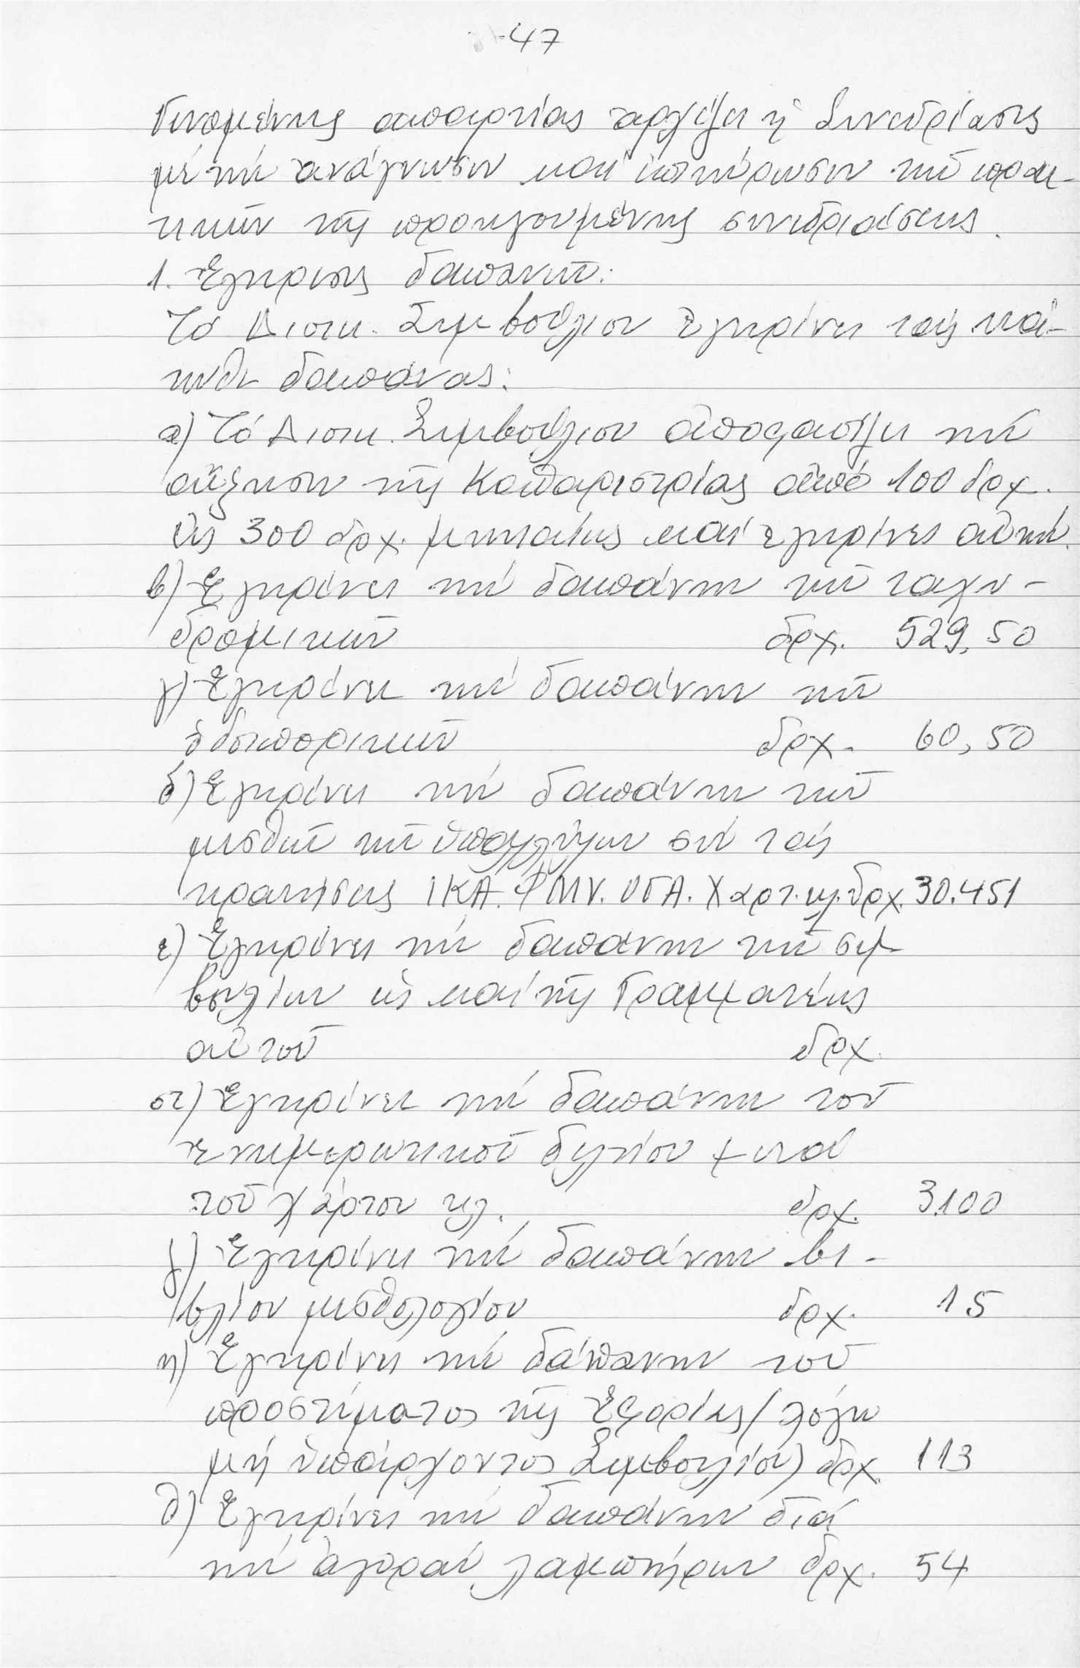 -47
Γενομένης ἀπαρτίας ἀρχίζει ἡ Συνεδρίασις
μέ τήν ἀνάγνωσιν καί ἐπικύρωσιν τῶν πρακ-
τικῶν τῆς προηγουμένης συνεδριάσεως.
1. Ἔγκρισις δαπανῶν:
Τό Διοικ. Συμβούλιον ἐγκρίνει τάς κά-
τωθι δαπάνας:
α) Τό Διοικ. Συμβούλιον ἀποφασίζει τήν
αὔξησιν τῆς Καθαριστρίας ἀπό 100 δρχ.
εἰς 300 δρχ. μηνιαίως καί ἐγκρίνει αὐτήν.
β) Ἐγκρίνει τήν δαπάνην τῶν ταχυ-
δρομικῶν δρχ. 529,50
γ) Ἐγκρίνει τήν δαπάνην τῶν
ὁδοιπορικῶν δρχ. 60,50
δ) Ἐγκρίνει τήν δαπάνην τῶν
μισθῶν τῶν ὑπαλλήλων σύν ταῖς
κρατήσεις ΙΚΑ. ΦΜΥ. ΟΓΑ. Χαρτ. κλ. δρχ. 30.451
ε) Ἐγκρίνει τήν δαπάνην τῶν συμ-
βουλίων ὡς καί τῆς Γραμματέως
αὐτοῦ δρχ.
στ) Ἐγκρίνει τήν δαπάνην τοῦ
ἐνημερωτικοῦ δελτίου μετά
τοῦ χάρτου κλ. δρχ. 3100
ζ) Ἐγκρίνει τήν δαπάνην βι-
βλίου μισθολογίου δρχ. 15
η) Ἐγκρίνει τήν δαπάνην τοῦ
προστίματος τῆς Ἐφορίας (λόγω
μή ὑπάρχοντος Συμβουλίου) δρχ. 113
θ) Ἐγκρίνει τήν δαπάνην διά
τήν ἀγοράν λαμπτήρων δρχ. 54